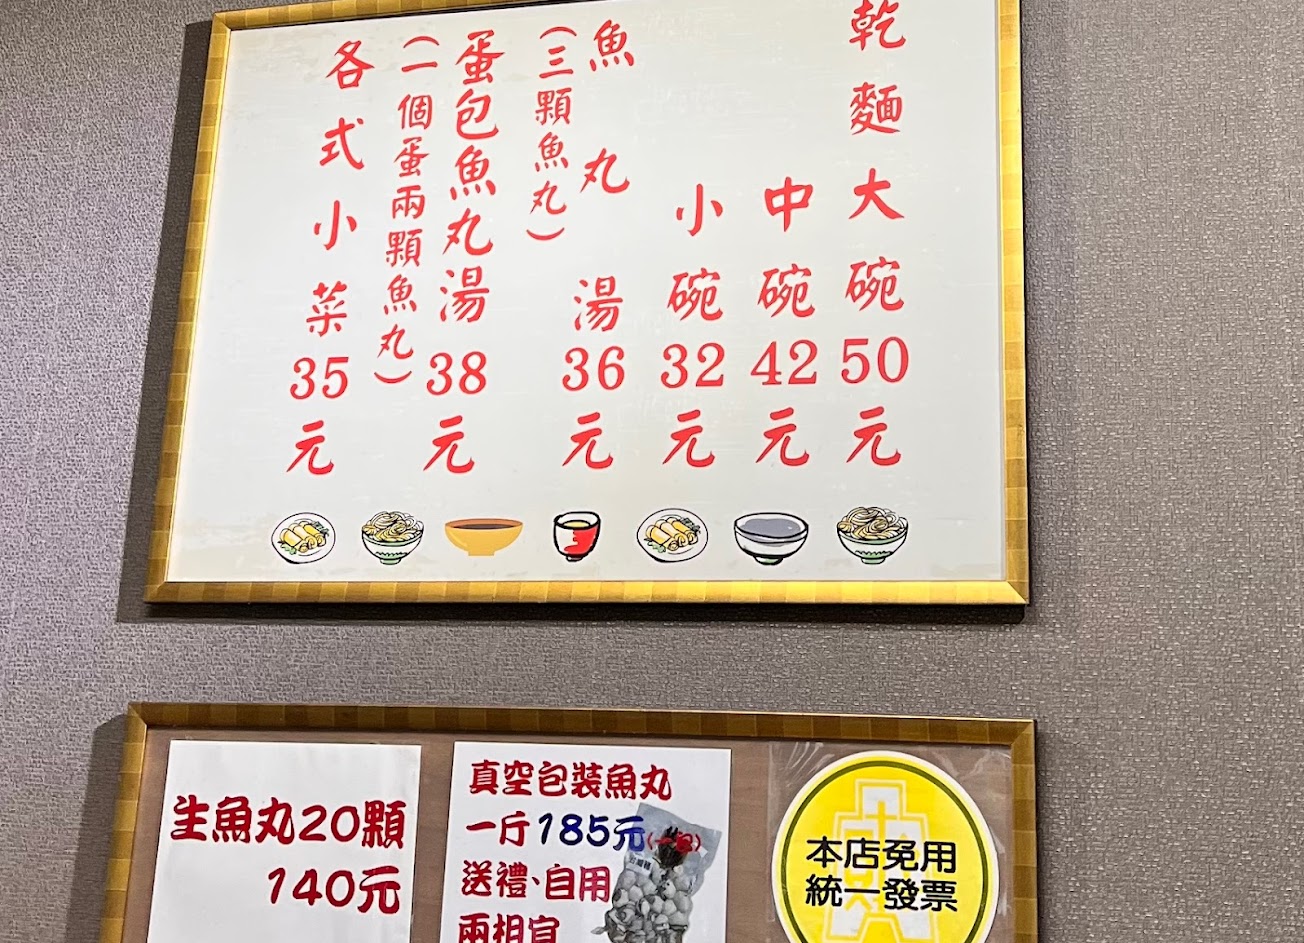 乾麵大碗50元
中碗42元
小碗32元
魚丸湯36元
(三顆魚丸)
蛋包魚丸湯38元
(一個蛋兩顆魚丸)
各式小菜35元
生魚丸20顆
140元
真空包裝魚丸
一斤185元(一包)
送禮·自用
兩相宜
本店免用
統一發票